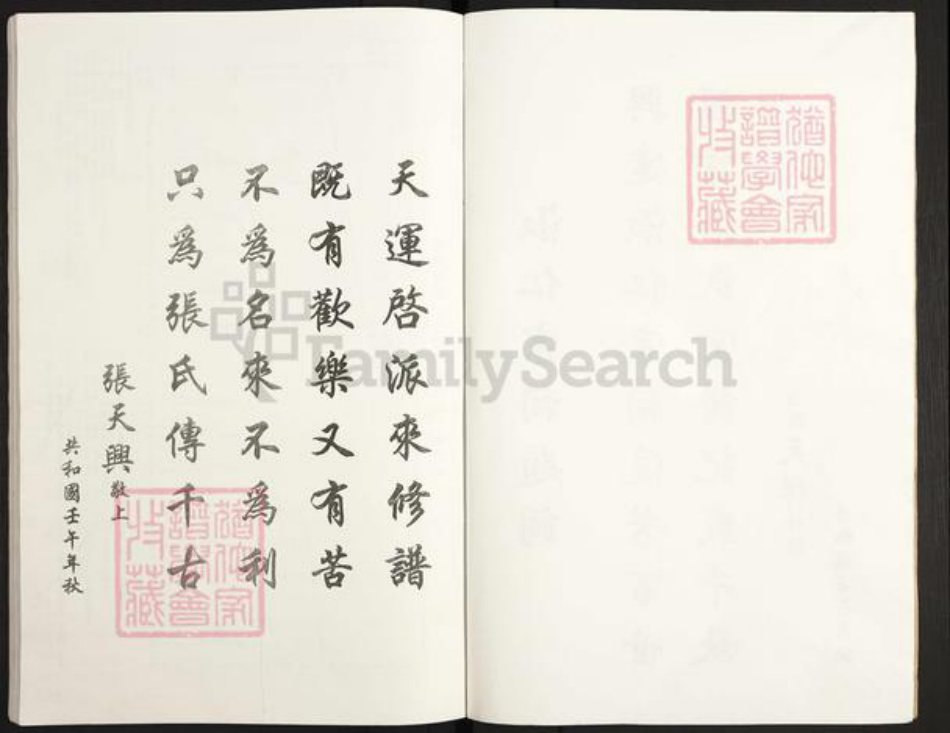 天運啓派來修譜
既有歡樂又有苦
不為名來不為利
只為張氏傳千古
張天興敬上
共和國壬午年秋
猶他家譜學會收藏
猶他家譜學會收藏
FamilySearch